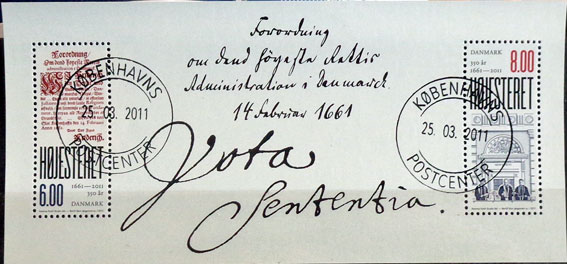 Forordning
om dend Høyeste Rettis
Administration i Danmarck
14 Februar 1661
Vota
Sententia.
Forordning
Om dend Høyeste Rettis
HØJESTERET
6.00
1661–2011
350 år
DANMARK
KØBENHAVNS
25. 03. 2011
POSTCENTER
DANMARK
8.00
350 år
1661–2011
HØJESTERET
KØBENHAVNS
25. 03. 2011
POSTCENTER